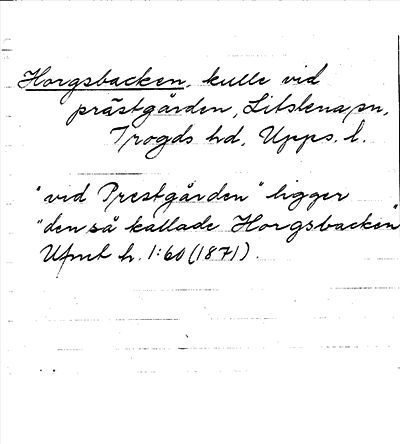 Horgsbacken, kulle vid
prästgården, Litslena sn,
Trögds hd, Upps. l.
"vid Prestgården" ligger
"den så kallade Horgsbacken"
Ufmt h. 1:60 (1871).